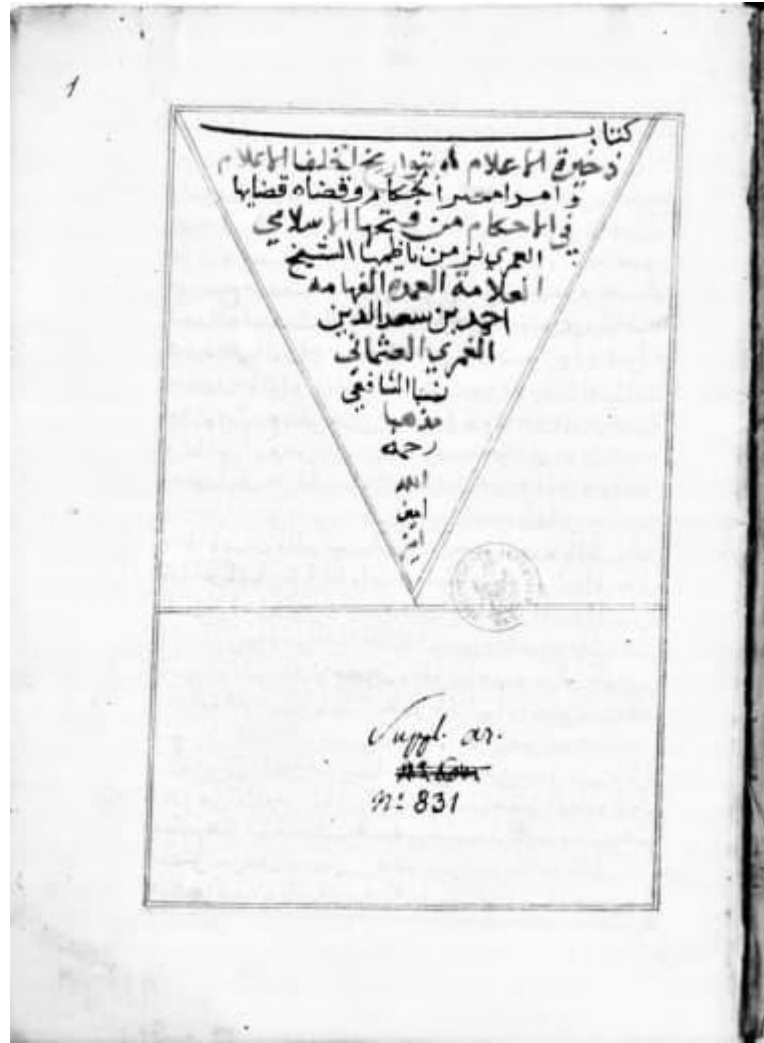 1
كتاب
ذخيرة الاعلام بتواريخ الخلفا الاعلام
وامرا مصر الحكام وقضاه قضايها
في الاحكام من فتحها الاسلامي
العمري لزمن ناظمها الشيخ
العلامة العمدة الفهامه
احمد بن سعد الدين
الغمري العثماني
نسبا الشافعي
مذهبا
رحمه
الله
امين
امين
Suppl. ar.
Nº 831